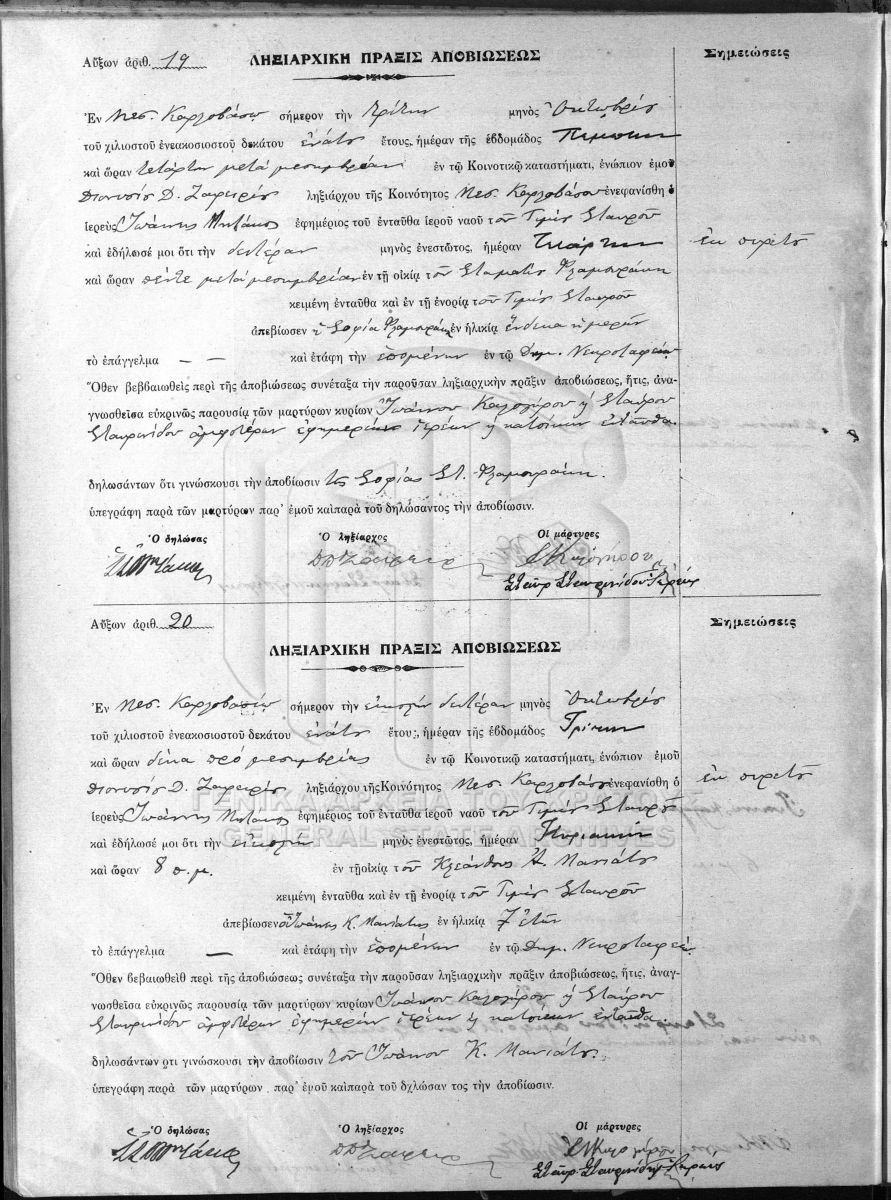 Αὔξων ἀριθ. 19
ΛΗΞΙΑΡΧΙΚΗ ΠΡΑΞΙΣ ΑΠΟΒΙΩΣΕΩΣ
Σημειώσεις
Ἐν Νεσ. Καρλοβάσῳ σήμερον τὴν τρίτην μηνὸς Ὀκτωβρίου
τοῦ χιλιοστοῦ ἐνεακοσιοστοῦ δεκάτου ἐνάτου ἔτους, ἡμέραν τῆς ἑβδομάδος Πέμπτην
καὶ ὥραν τετάρτην μετὰ μεσημβρίαν ἐν τῷ Κοινοτικῷ καταστήματι, ἐνώπιον ἐμοῦ
Διονυσίου Δ. Ζαφειρίου ληξιάρχου τῆς Κοινότητος Νεσ. Καρλοβάσου ἐνεφανίσθη ὁ
ἱερεὺς Ἰωάννης Μυτάκος ἐφημέριος τοῦ ἐνταῦθα ἱεροῦ ναοῦ τοῦ Τιμίου Σταυροῦ
καὶ ἐδήλωσέ μοι ὅτι τὴν δευτέραν μηνὸς ἐνεστῶτος, ἡμέραν Τετάρτην
ἐκ πυρετοῦ
καὶ ὥραν πέντε μετὰ μεσημβρίαν ἐν τῇ οἰκίᾳ τοῦ Σταματίου
κειμένῃ ἐνταῦθα καὶ ἐν τῇ ἐνορίᾳ τοῦ Τιμίου Σταυροῦ
ἀπεβίωσεν ἡ Σοφία ἐν ἡλικίᾳ ἕνδεκα ἡμερῶν
τὸ ἐπάγγελμα — — καὶ ἐτάφη τὴν ἑπομένην ἐν τῷ Δημ. Νεκροταφείῳ
Ὅθεν βεβαιωθεὶς περὶ τῆς ἀποβιώσεως συνέταξα τὴν παροῦσαν ληξιαρχικὴν πρᾶξιν ἀποβιώσεως, ἥτις, ἀνα-
γνωσθεῖσα εὐκρινῶς παρουσίᾳ τῶν μαρτύρων κυρίων Ἰωάννου Καλογήρου ἢ Σταύρου
Σταυρινίδου ἀμφοτέρων ἐφημερίων ἱερέων ἢ κατοίκων ἐνταῦθα
δηλωσάντων ὅτι γινώσκουσι τὴν ἀποβίωσιν τῆς Σοφίας Στ.
ὑπεγράφη παρὰ τῶν μαρτύρων παρ' ἐμοῦ καὶπαρὰ τοῦ δηλώσαντος τὴν ἀποβίωσιν.
Ὁ δηλώσας Ὁ ληξίαρχος Οἱ μάρτυρες
Καλογήρου
Σταῦρ Σταυρινίδου Ἱερεύς
Αὔξων ἀριθ. 20
Σημειώσεις
ΛΗΞΙΑΡΧΙΚΗ ΠΡΑΞΙΣ ΑΠΟΒΙΩΣΕΩΣ
Ἐν Νεσ. Καρλοβασίῳ σήμερον τὴν εἰκοστὴν δευτέραν μηνὸς Ὀκτωβρίου
τοῦ χιλιοστοῦ ἐνεακοσιοστοῦ δεκάτου ἐνάτου ἔτους, ἡμέραν τῆς ἑβδομάδος Τρίτην
καὶ ὥραν δέκα πρὸ μεσημβρίας ἐν τῷ Κοινοτικῷ καταστήματι, ἐνώπιον ἐμοῦ
Διονυσίου Δ. Ζαφειρίου ληξιάρχου τῆς Κοινότητος Νεσ. Καρλοβάσου ἐνεφανίσθη ὁ
ἐκ πυρετοῦ
ἱερεὺς Ἰωάννης Μυτάκος ἐφημέριος τοῦ ἐνταῦθα ἱεροῦ ναοῦ τοῦ Τιμίου Σταυροῦ
ΓΕΝΙΚΑ ΑΡΧΕΙΑ ΤΟΥ ΚΡΑΤΟΥΣ
GENERAL STATE ARCHIVES
καὶ ἐδήλωσέ μοι ὅτι τὴν εἰκοστὴν μηνὸς ἐνεστῶτος, ἡμέραν Κυριακὴν
καὶ ὥραν 8 π.μ. ἐν τῇ οἰκίᾳ τοῦ Κλεάνθους Α. Μανιάτου
κειμένῃ ἐνταῦθα καὶ ἐν τῇ ἐνορίᾳ τοῦ Τιμίου Σταυροῦ
ἀπεβίωσεν ὁ Ἰωάννης Κ. Μανιάτης ἐν ἡλικίᾳ 7 ἐτῶν
τὸ ἐπάγγελμα — καὶ ἐτάφη τὴν ἑπομένην ἐν τῷ Δημ. Νεκροταφείῳ
Ὅθεν βεβαιωθεὶθ περὶ τῆς ἀποβιώσεως συνέταξα τὴν παροῦσαν ληξιαρχικὴν πρᾶξιν ἀποβιώσεως, ἥτις, ἀναγ-
νωσθεῖσα εὐκρινῶς παρουσίᾳ τῶν μαρτύρων κυρίων Ἰωάννου Καλογήρου ἢ Σταύρου
Σταυρινίδου ἀμφοτέρων ἐφημερίων ἱερέων ἢ κατοίκων ἐνταῦθα
δηλωσάντων οτι γινώσκουσι τὴν ἀποβίωσιν τοῦ Ἰωάννου Κ. Μανιάτου.
ὑπεγράφη παρὰ τῶν μαρτύρων παρ' ἐμοῦ καὶπαρὰ τοῦ δχλώσαν τος τὴν ἀποβίωσιν.
Ὁ δηλώσας Ὁ ληξίαρχος Οἱ μάρτυρες
Σταῦρ. Σταυρινίδης Ἱερεύς